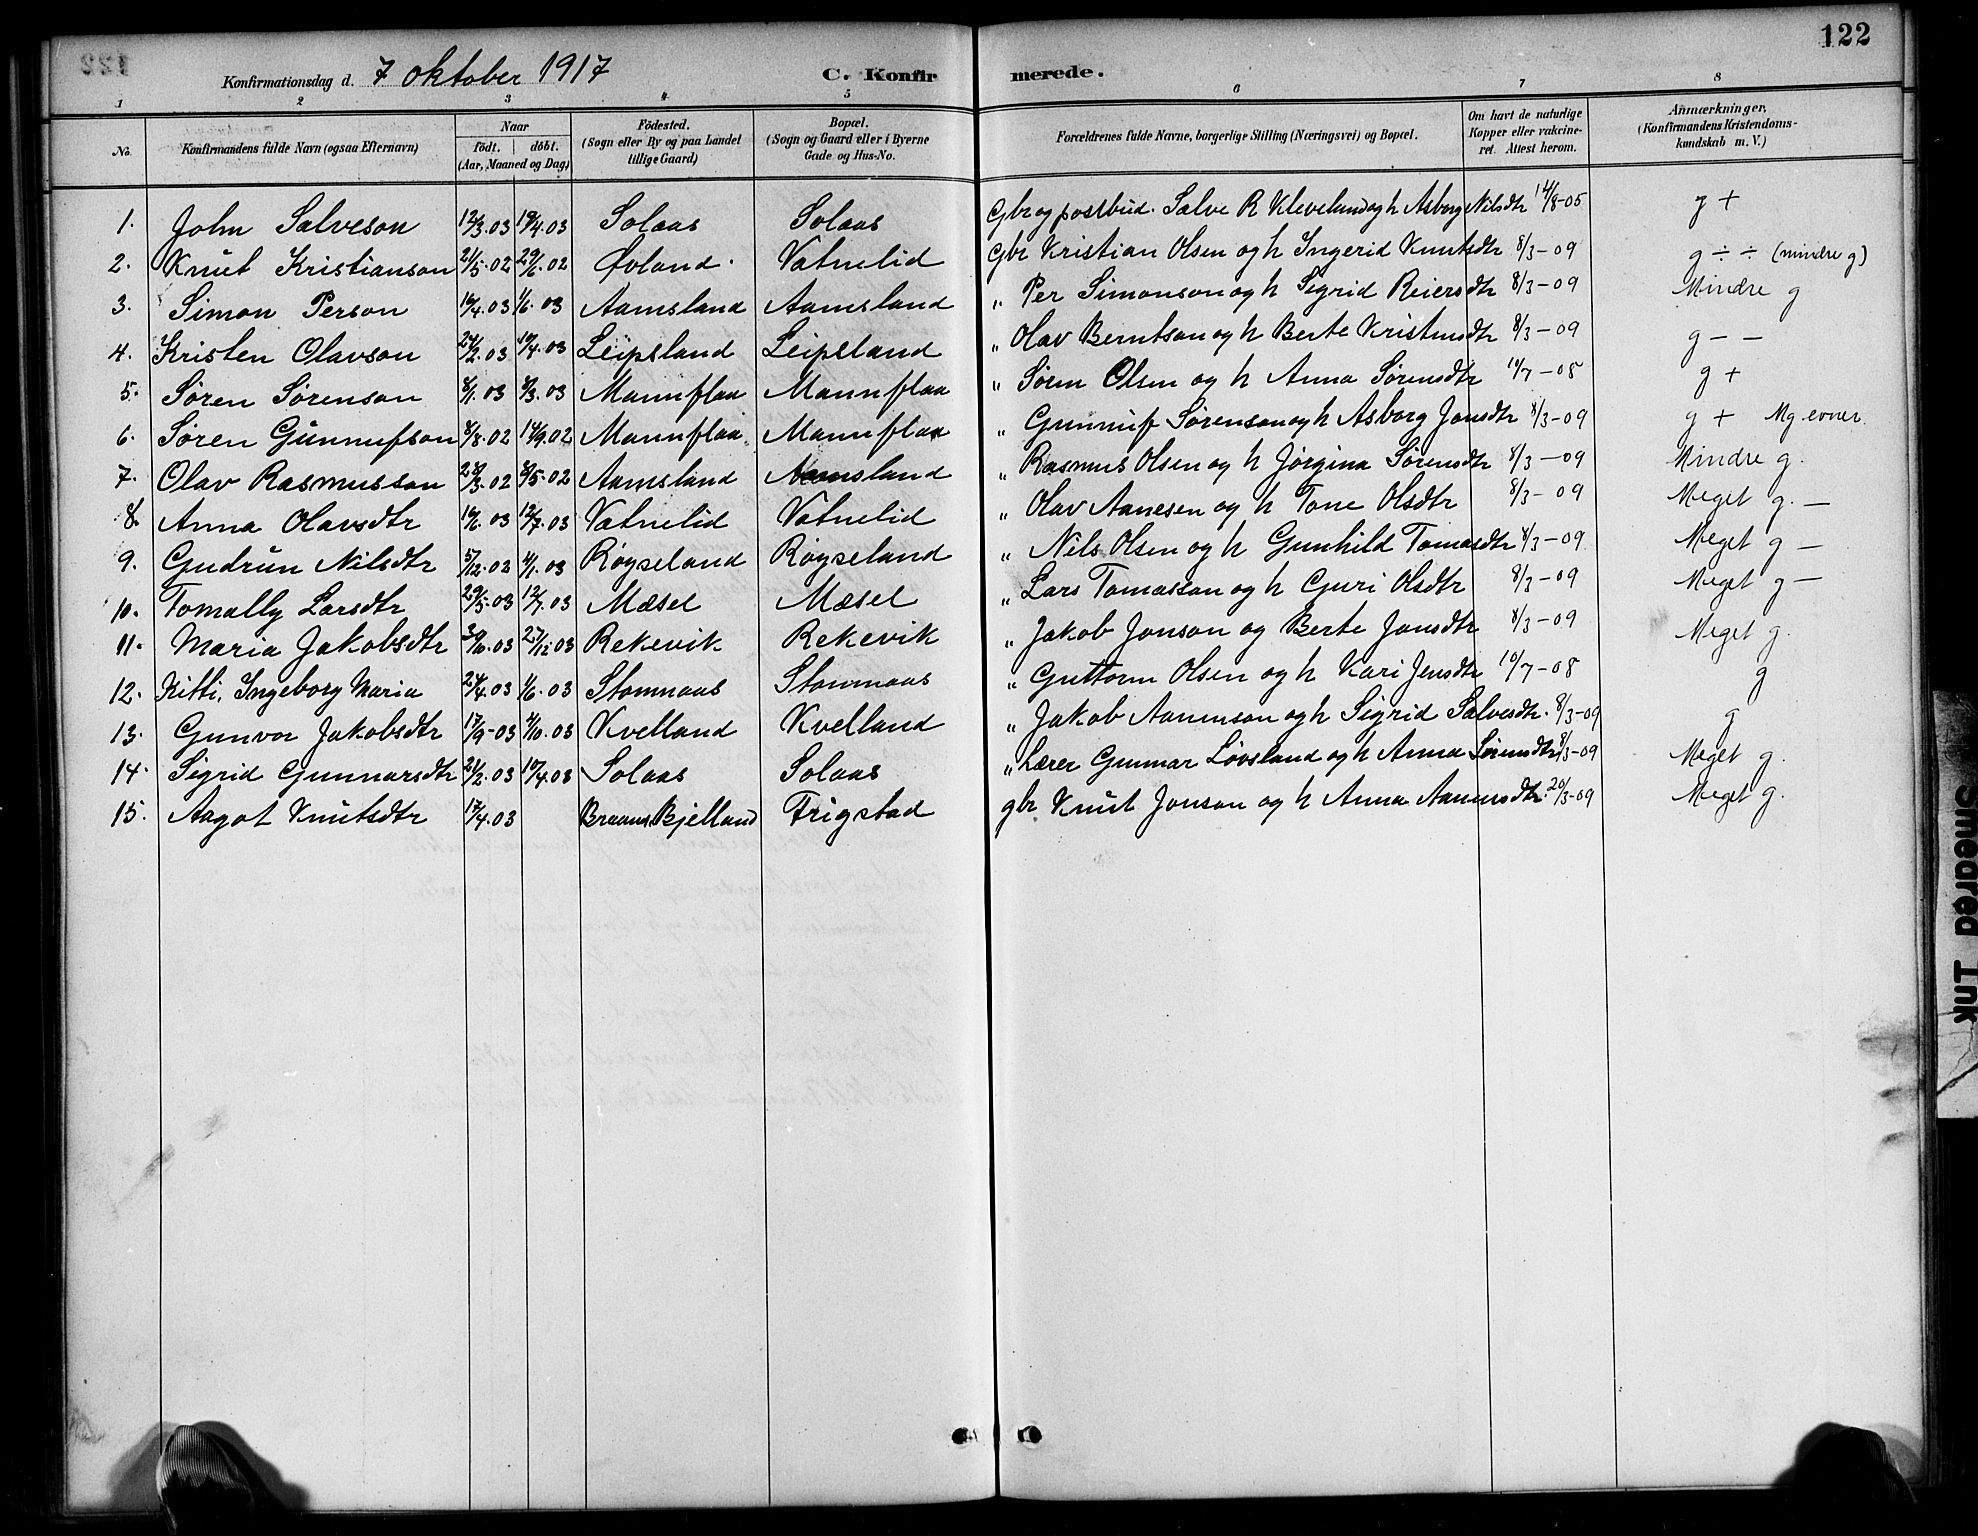 122
Konfirmationsdag d. 7 oktober 1917 C. Konfirmerede.
1 2 3 4 5 6 7 8
No. Konfirmandens fulde Navn (ogsaa Efternavn) Naar født. døbt. (Aar, Maaned og Dag) Födested. (Sogn eller By og paa Landet tillige Gaard) Bopæl. (Sogn og Gaard eller i Byerne Gade og Hus-No. Forældrenes fulde Navne, borgerlige Stilling (Næringsvei) og Bopæl. Om havt de naturlige Kopper eller vakcineret. Attest herom. Anmærkninger. (Konfirmandens Kristendomskundskab m. V.)
1. John Salveson 12/3.03 19/4.03 Solaas Solaas Gbr og postbud. Salve R Kleveland og h Asborg Nilsdtr 14/8-05 g +
2. Knut Kristianson 21/5.02 29/6.02 Øvland. Vatnelid Gbr Kristian Olsen og h Ingerid Knutsdtr 8/3-09 g ÷ ÷ (mindre g)
3. Simon Person 16/4.03 1/6.03 Aamsland Aamsland „ Per Simonson og h Sigrid Reiersdtr 8/3-09 Mindre g
4. Kristen Olavson 24/2.03 19/4.03 Leipsland Leipsland „ Olav Berntson og h Berte Kristensdtr 8/3-09 g — —
5. Søren Sørenson 8/1.03 8/3.03 Mannflaa Mannflaa „ Søren Olsen og h Anna Sørensdtr 10/7-08 g +
6. Søren Gunnufson 8/8.02 14/9.02 Mannflaa. Mannflaa „ Gunnuf Sørenson og h Asborg Jonsdtr 8/3-09 g + Mg evner.
7. Olav Rasmusson 28/3.02 8/5.02 Aamsland Aamsland „ Rasmus Olsen og h Jørgina Sørensdtr 8/3-09 Mindre g.
8. Anna Olavsdtr 16/6.03 12/7.03 Vatnelid Vatnelid „ Olav Aanesen og h Tone Olsdtr 8/3-09 Meget g. —
9. Gudrun Nilsdtr 5/12.02 4/1.03 Røyseland Røyseland „ Nils Olsen og h Gunhild Tomasdtr 8/3-09 Meget g —
10. Tomally Larsdtr 29/5.03 12/7.03 Mæsel Mæsel „ Lars Tomasson og h Guri Olsdtr 8/3-09 Meget g —
11. Maria Jakobsdtr 30/10.03 27/12 03 Rekevik Rekevik „ Jakob Jonson og Berte Jonsdtr 8/3-09 Meget g.
12. Kitti, Ingeborg Maria 24/4.03 1/6.03 Stommaas Stommaas „ Guttorm Olsen og h Kari Jensdtr 10/7-08 g
13. Gunvor Jakobsdtr 17/9-03 4/10.03 Kvelland Kvelland „ Jakob Aanenson og h Sigrid Salvesdtr. 8/3-09 g
14. Sigrid Gunnarsdtr 21/2.03 19/4.03 Solaas Solaas „ Lærer Gunnar Løvsland og h Anna Sørensdtr 8/3-09 Meget g.
15. Aagot Knutsdtr 17/4.03 Braavs Bjelland Trigstad gbr Knut Jonson og h Anna Aanensdtr. 20/3-09 Meget g.
Smeared Ink